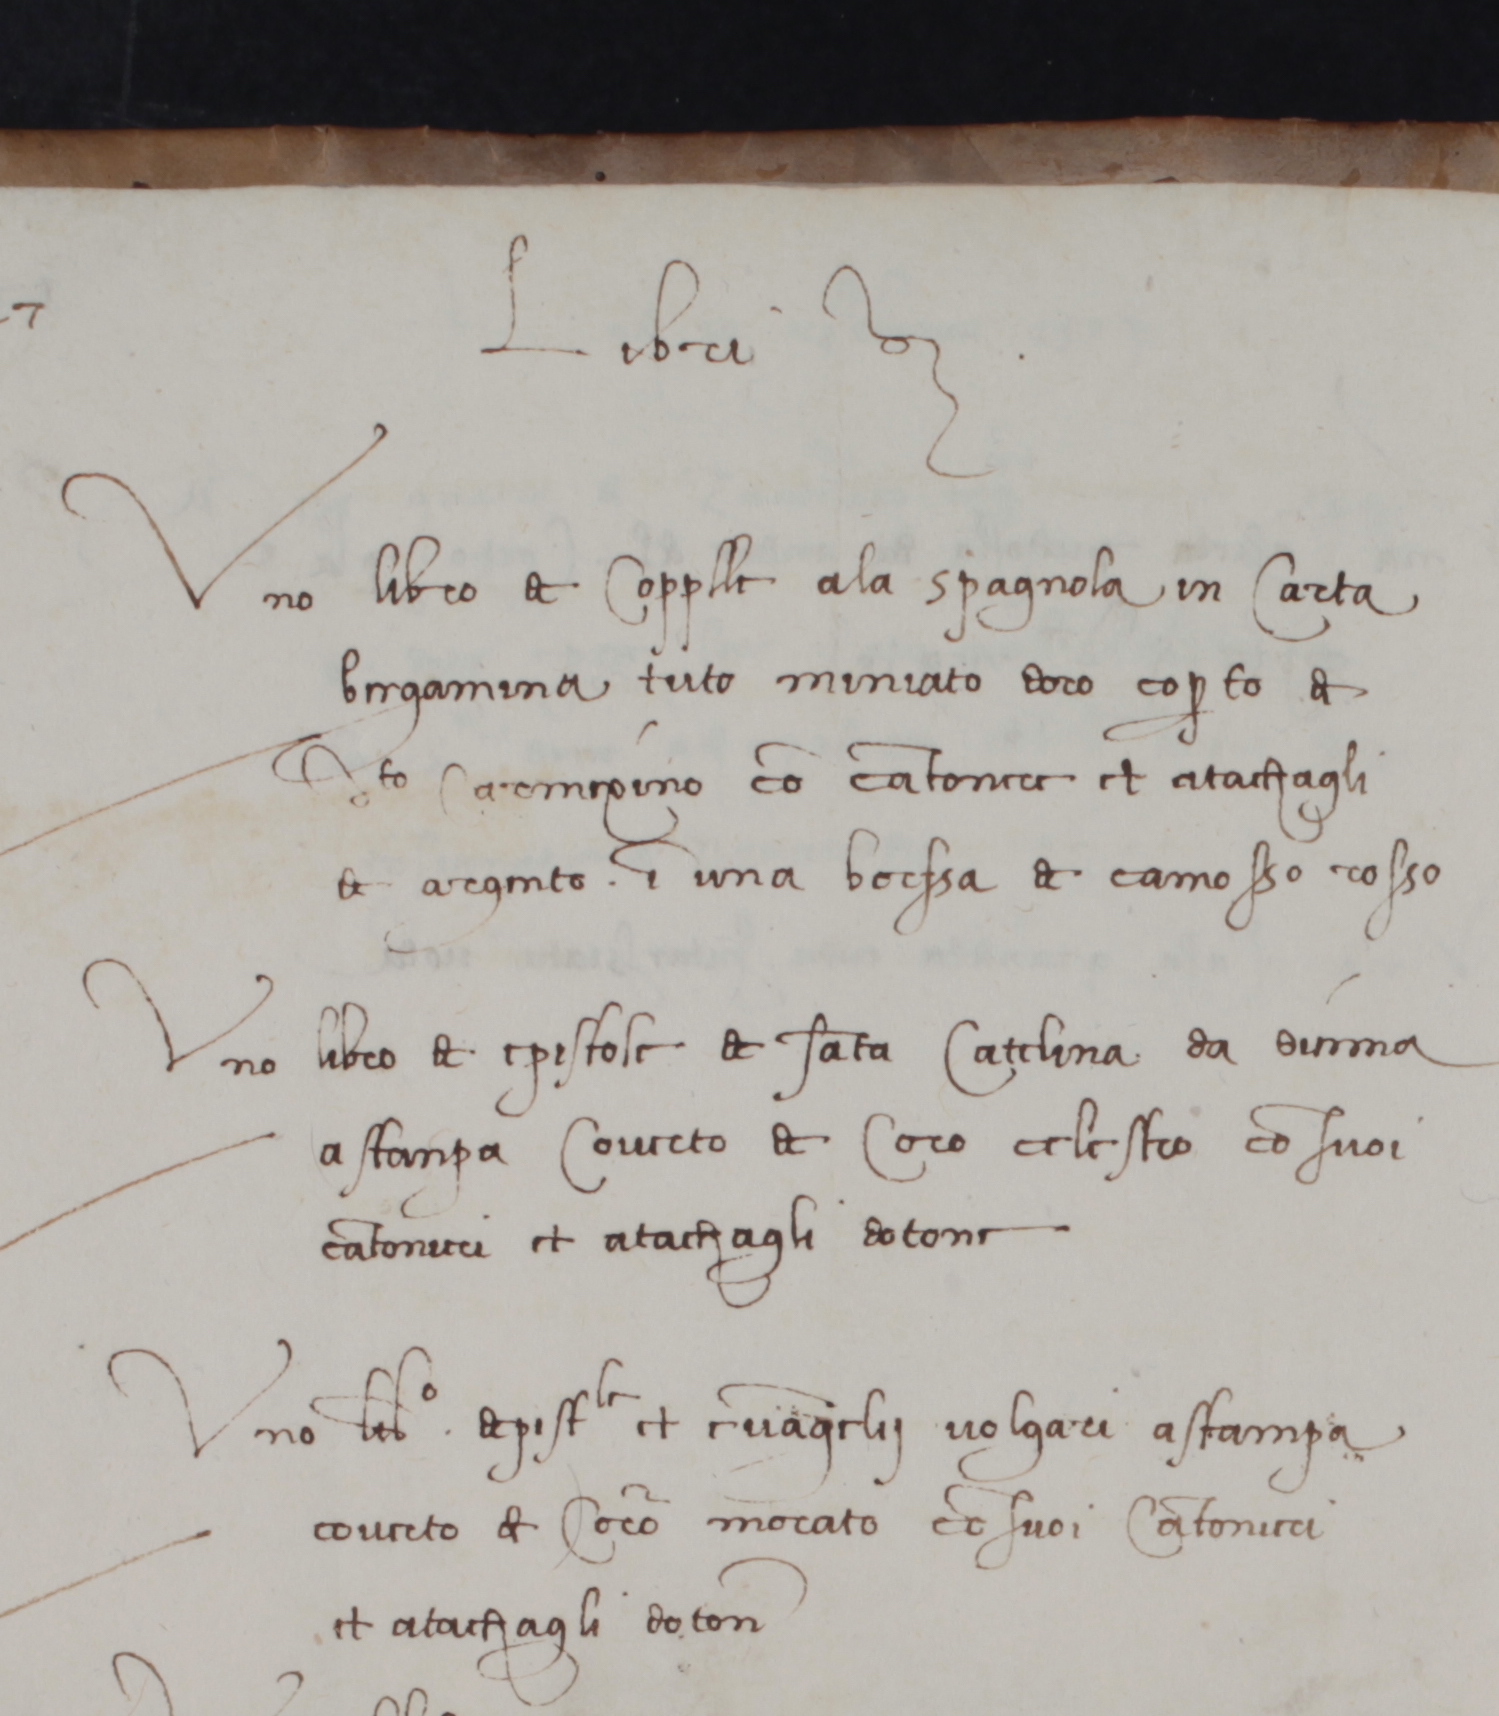 Libri
Vno libro de Copple ala spagnola in Carta
bergamena tuto miniato doro coperto de
Carmesino cō cātoneri et atachagli
de argento. ī una borssa de camosso rosso
Vno libro de epistole de sāta Catelina da sienna
a stanpa Coverto de Coro celestro cō suoi
cātoneri et atachagli dotone
Vno libo. depistle et evāgelij volgari a stampa
coverto de Corō morato cō suoi Cātoneri
et atachagli doton